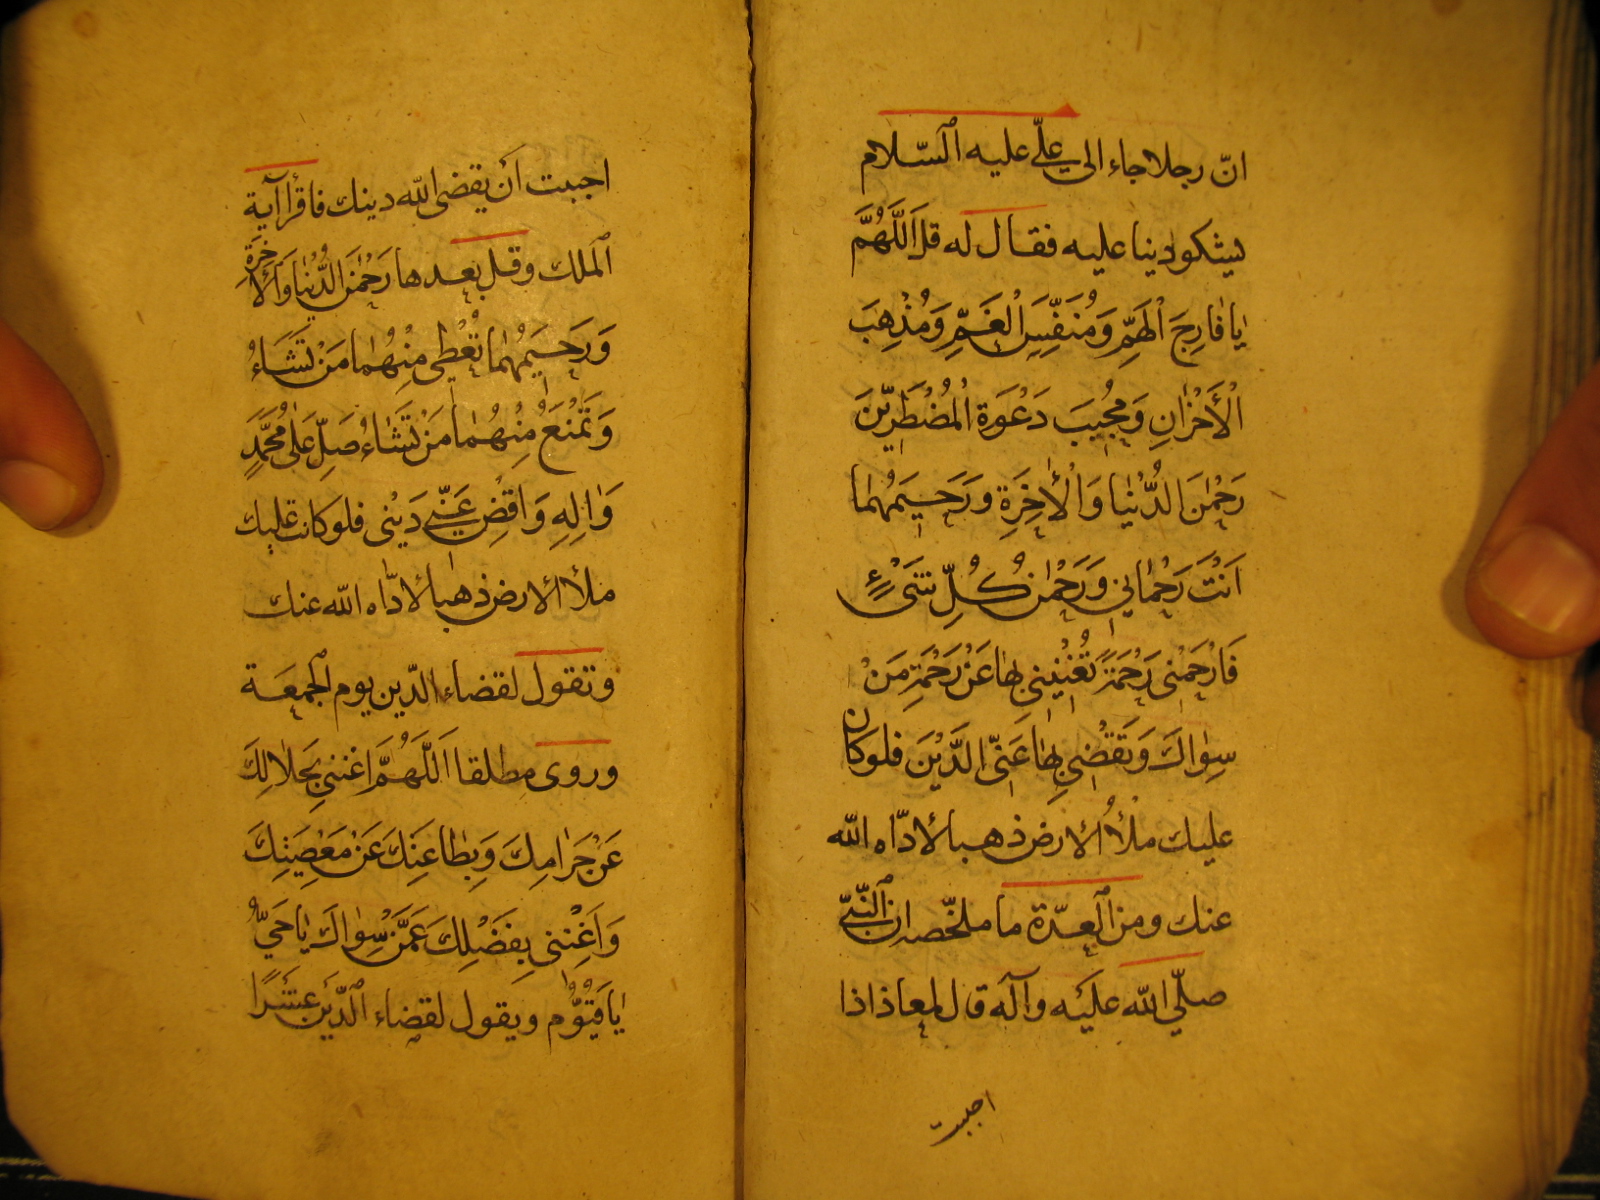 انّ رجلا جاء الى علىّ عليه السّلام
يشكو دينا عليه فقال له قل اَللّٰهُمَّ
يٰا فٰارِجَ الْهَمِّ وَمُنَفِّسَ الْغَمِّ وَمُذْهِبَ
الْأَحْزٰانِ وَمُجِيبَ دَعْوَةِ الْمُضْطَرِّينَ
رَحْمٰنَ الدُّنْيٰا وَالْاٰخِرَةِ وَرَحِيمَهُمٰا
اَنْتَ رَحْمٰانِي وَرَحْمٰنُ كُلِّ شَىْءٍ
فَارْحَمْنِى رَحْمَةً تُغْنِينِي بِهٰا عَنْ رَحْمَةِ مَنْ
سِوٰاكَ وَتَقْضِي بِهٰا عَنِّى الدَّيْنَ فلو كان
عليك ملأ الارض ذهبا لادّاه الله
عنك ومن العدّة ما ملخّصه ان النّبىّ
صلّى الله عليه وآله قال لمعاذ اذا
احببت
احببت أن يقضى الله دينك فاقرأ آية
الملك وقل بعدها رَحْمٰنَ الدُّنْيٰا وَالْاٰخِرَةِ
وَرَحِيمَهُمٰا تُعْطِى مِنْهُمٰا مَنْ تَشَاءُ
وَتَمْنَعُ مِنْهُمٰا مَنْ تَشٰاءُ صَلِّ عَلىٰ مُحَمَّدٍ
وَاٰلِهِ وَاقْضِ عَنِّى دَيْنِى فلو كانت عليك
ملأ الارض ذهبا لادّاه الله عنك
وتقول لقضاء الدّين يوم الجمعة
وروى مطلقا اَللّٰهُمَّ اغْنِنِي بِحَلٰالِكَ
عَنْ حَرٰامِكَ وَبِطٰاعَتِكَ عَنْ مَعْصِيَتِكَ
وَاَغْنِنِى بِفَضْلِكَ عَمَّنْ سِوٰاكَ يٰا حَىُّ
يٰا قَيُّومُ ويقول لقضاء الدّين عشرًا